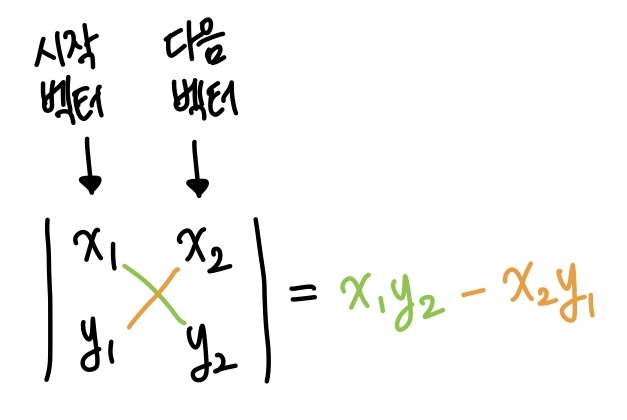 시작 다음
벡터 벡터
| x₁ x₂ |
| y₁ y₂ | = x₁y₂ - x₂y₁